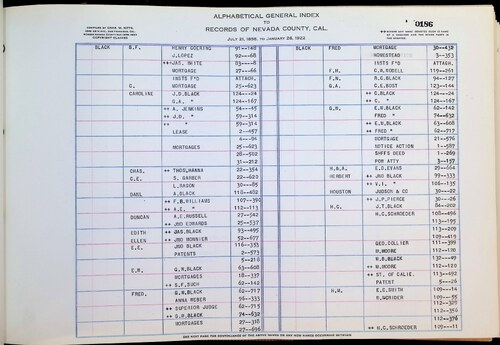 ALPHABETICAL GENERAL INDEX
TO
RECORDS OF NEVADA COUNTY, CAL.
JULY 21, 1856, TO JANUARY 26, 1922
0186
BLACK B.F. HENNY GOERING 91--140 BLACK FRED MORTGAGE 30--432
J.LOPEZ 92--68 HOMESTEAD 3--353
++ JAS. WHITE 03----8 INSTS F*D ATTACH.
MORTGAGE 27--66 F.H. C.H.RODELL 119--261
INSTS F*D ATTACH. F.N. R.C.BLACK 127--144
C. MORTGAGE 25--623 G.A. C.L.BOST 123--54
CAROLINE J.D.BLACK 124--24 ++ C.BLACK 124--24
G.A. " 124--167 ++ C. " 124--167
++ A. JENKINS 54--45 G.H. E.W.BLACK 62--142
++ J.D. " 59--314 FRED " 74--632
++ " 59--314 ++ E.W.BLACK 63--608
LEASE 2--457 ++ FRED " 62--717
4--94 MORTGAGE 21--576
MORTGAGES 25--623 NOTICE ACTION 1--587
28--502 SHFFS DEED 1--269
31--212 POR ATTY 3--157
CHAS. ++ THOS.HANNA 22--354 H.&A. E.D.EVANS 29--664
C.E. S. GARBER 22--620 HERBERT ++ JNO BLACK 99--333
L.MASON 30--85 ++ V.I. " 106--135
DAHL A.BLACK 112--402 HOUSTON JUDSON & CO 30--22
++ F.B.WILLIAMS 107--390 ++ J.P.PIERCE 30--26
++ A.E. " 112--113 H.C. J.T.BLACK 84--202
DUNCAN A.C.RUSSELL 27--542 H.C.SCHROEDER 108--496
++ JNO EDWARDS 25--537 113--195
EDITH ++ JAS.BLACK 93--495 113--209
ELLEN ++ JNO MONNIER 52--677 109--419
E.E. JNO BLACK 116--353 GEO.COLLIER 111--399
PATENTS 2--573 W.MOORE 112--170
5--218 W.B.BLACK 132--49
E.W. G.H.BLACK 63--608 ++ W.MOORE 112--170
MORTGAGES 18--337 ++ ST. OF CALIF. 113--492
++ S.F.SUCH 62--142 PATENT 5--26
FRED. G.H.BLACK 62--717 H.W. E.C.SMITH 109--14
ANNA WEBER 96--333 W.GRIDER 109--55
++ SUPERIOR JUDGE 62--715 112--329
++ G.H.BLACK 74--632 112--356
MORTGAGES 27--318 112--376
27--696 ++ H.C.SCHROEDER 109--11